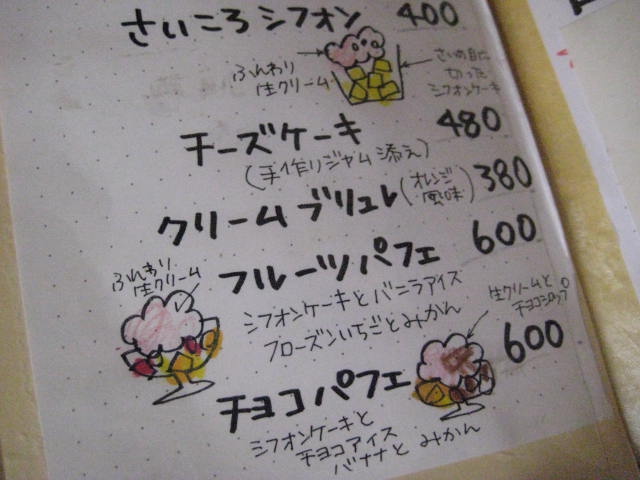 さいころシフォン 400
ふんわり
生クリーム
さいの目に
切った
シフォンケーキ
チーズケーキ 480
(手作りジャム添え)
クリームブリュレ(オレンジ風味) 380
フルーツパフェ 600
ふんわり
生クリーム
シフォンケーキとバニラアイス
フローズンいちごとみかん
生クリームと
チョコシロップ
チョコパフェ 600
シフォンケーキと
チョコアイス
バナナとみかん